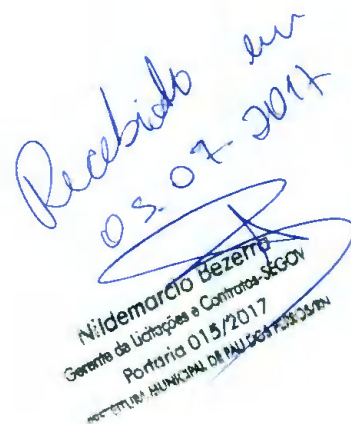 Recebido em
05.07.2017
Nildemarcio Bezerra
Gerente de Licitações e Contratos-SEGOV
Portaria 015/2017
PREFEITURA MUNICIPAL DE PAU DOS FERROS/RN